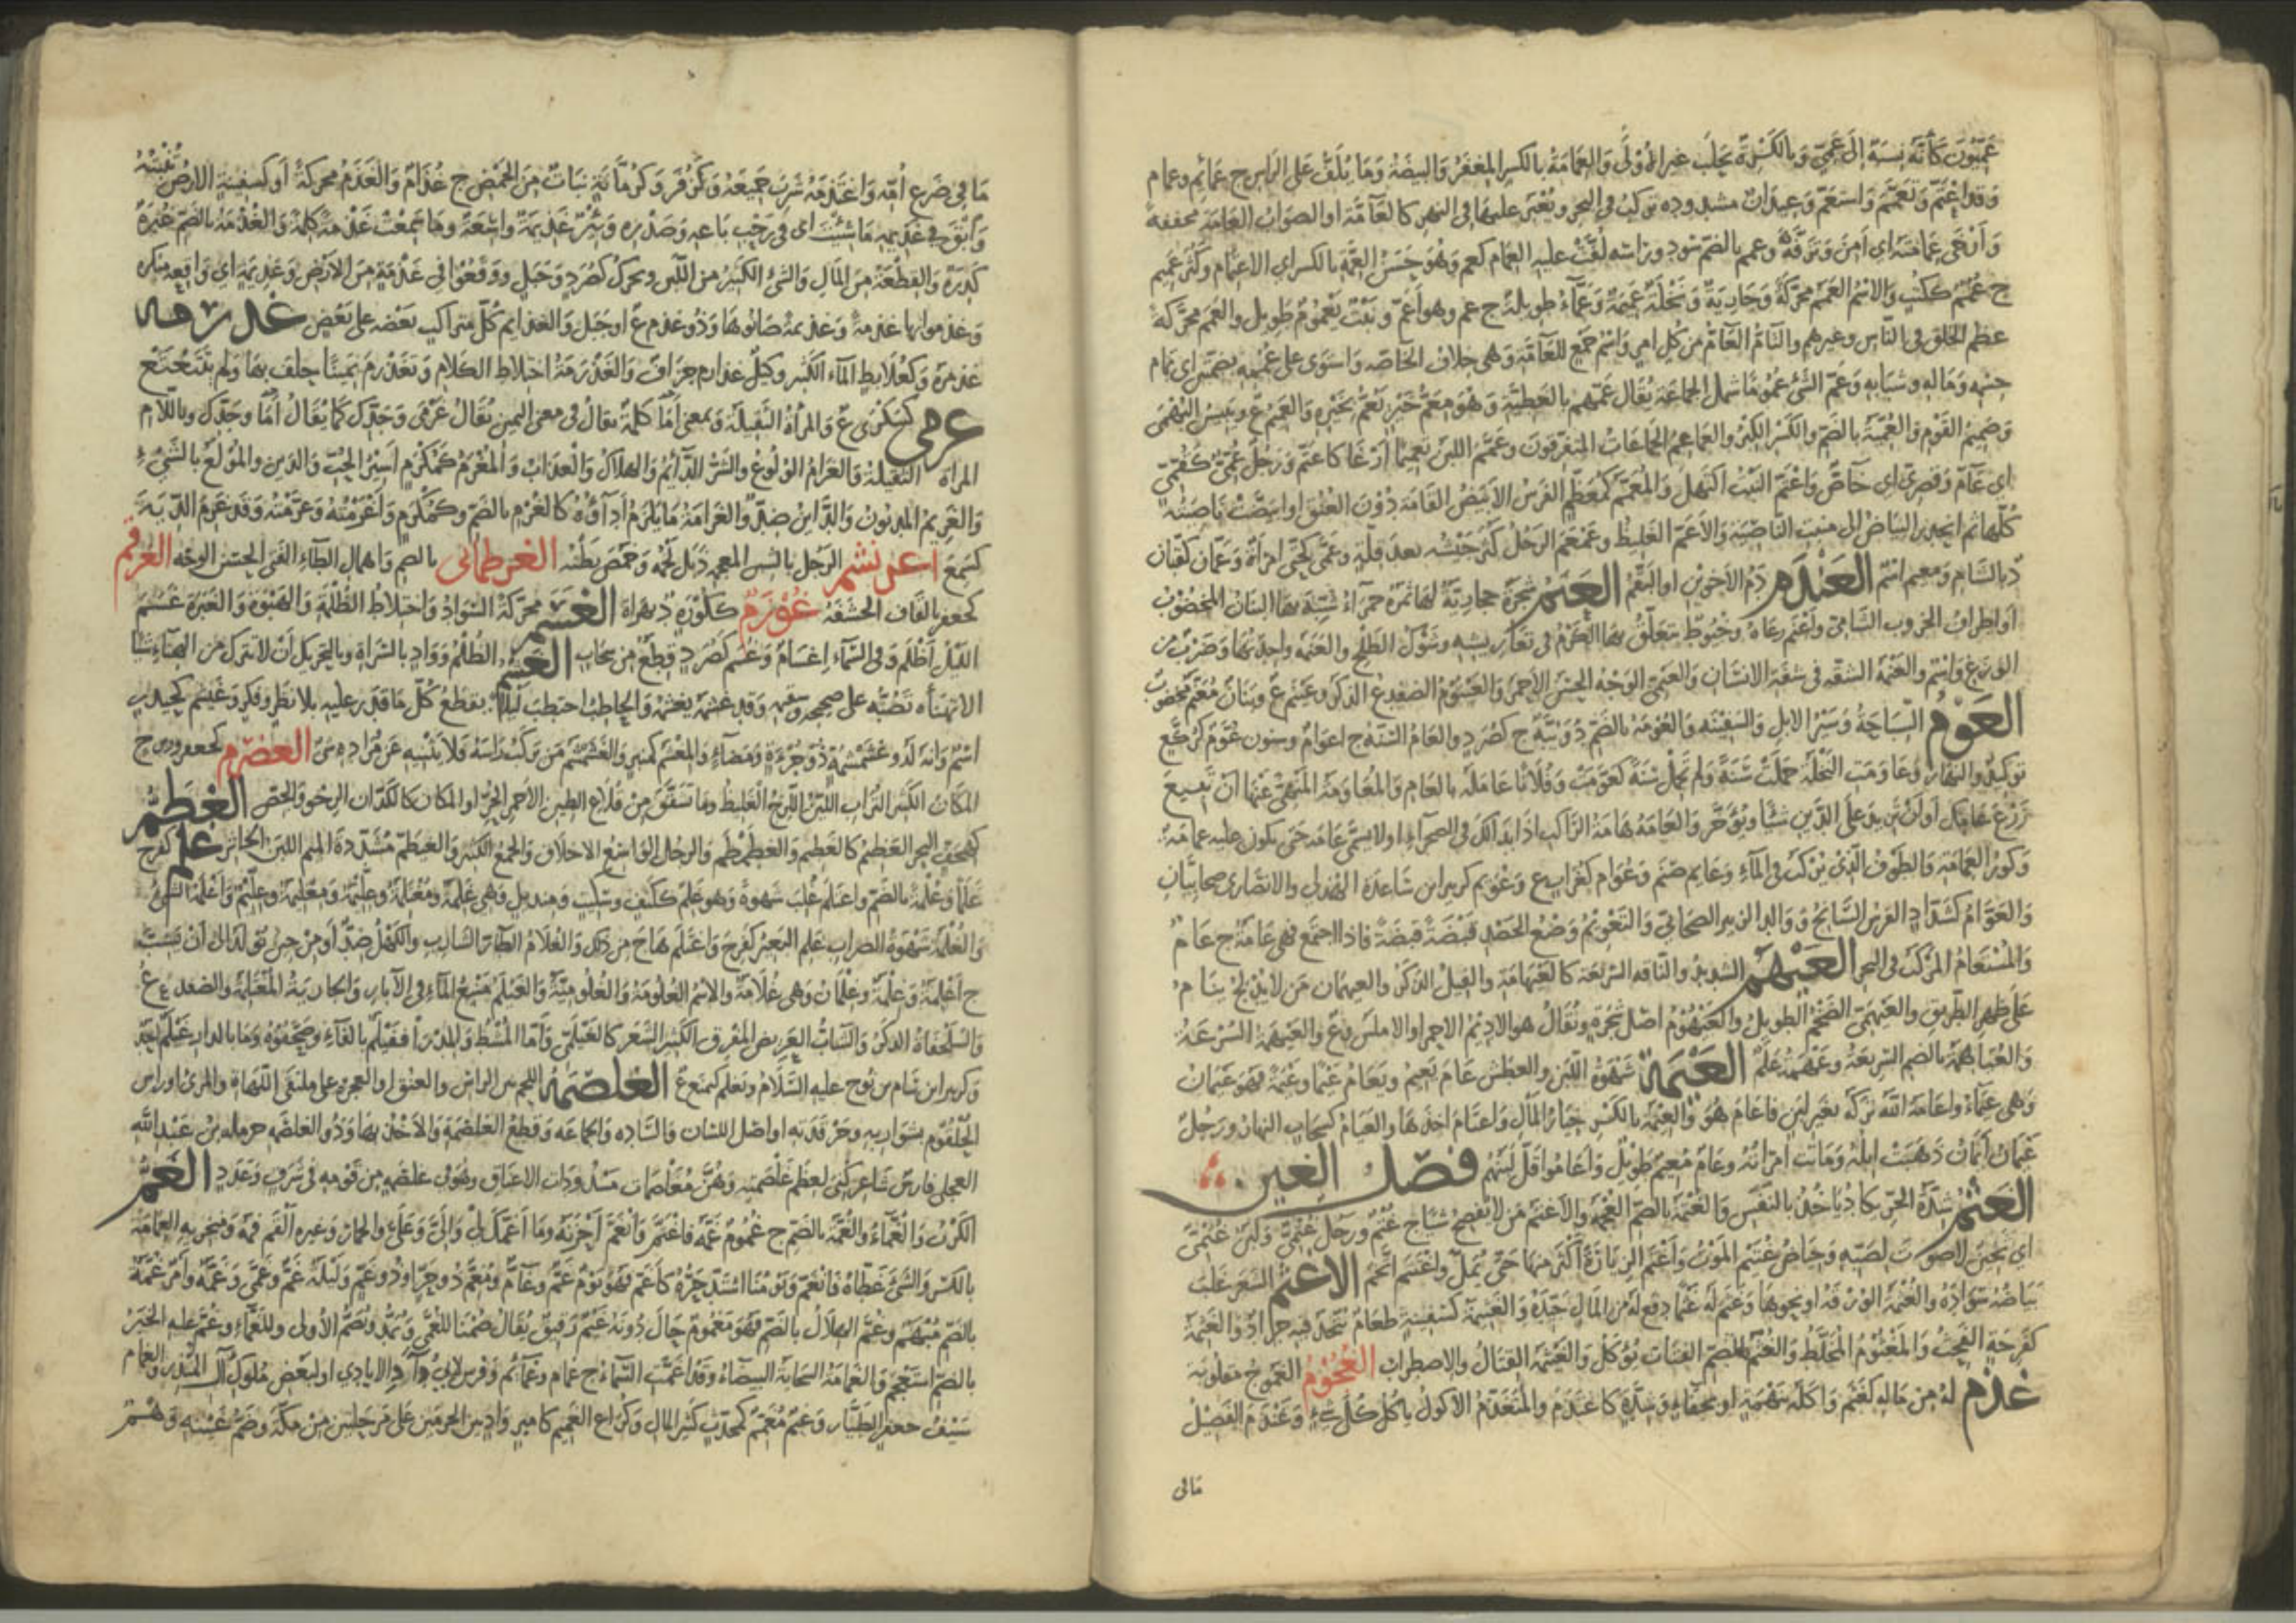 عَمِّيُّونَ كأنه نِسبة إلى عَمّيّ وبالكسرة بحلب غير الأولى والعمامة بالكسر المغفر والبيضة وما يُلَفّ على الرأس ج عمائم وعمام
وقد اعتمّ وتعمّم واستعمّ وعيدان مشدوده تركب في البحر ويعبر عليها في النهر كالعامّة او الصواب العامة مخففة
وأرخى عمامته اي امن وترفّه وعمم بالضم سُوّد ورأسه لفّت عليه العمام كعم وهو حسن العمّة بالكسر اي الاعتمام وكل عميم
ج عُمُم ككتب والاسم العمم محركة وجارية ونخلة عميمة وعمّاء طويلة ج عم وهو اعمّ ونبت يعموم طويل والعمم محركة
عظم الخلق في الناس وغيرهم والتام العام من كل امر واسم جمع للعامة وهي خلاف الخاصه واستوى على عُممه بضمتين اي تمام
جسمه وماله وشبابه وعمّ الشئ عموما شمل الجماعة يقال عمّهم بالعطية وهو مِعَمّ خير يعمّ بخيره والعم ع ويبيس البهمى
وصميم القوم والعمية بالضم والكسر الكبر والعماعم الجماعات المتفرقون وعمّم اللبن تعميما أرغى كاعتم ورجل عُمّيّ كقمّي
اي عام وقصري اي خاصّ واعتمّ النبت اكتهل والمعمّم كمعظم الفرس الابيض القامة دون العنق او ابيضت ناصيته
كلها ثم انحدر البياض الى منبت الناصية والاعم الغليظ وعمعم الرجل كثر جيشه بعد قلة وعمّى كحتى امرأة وعمّان كقبان
د بالشام ومعم اسم العندم دم الاخوين او البقّم العنم شجرة حجازية لها ثمرة حمراء شبه بها البنان المخضوب
او اطراف الخروب الشامي واعنم رعاه وخيوط يتعلق بها الكرم في تعاريشه وشوك الطلح والعنمة واحدتها وضرب من
الوزغ واسم والعنمة الشقة في شفة الانسان والعنمي الوجه الحسن الاحمر والعينوم الضفدع الذكر وعينم ع وبنان معنم مخضوب
العوم السباحة وسير الابل والسفينة والعومة بالضم دويبة ج كصرد والعام السنة ج اعوام وسنون عوم كركع
توكيد والنهار وعاومت النخلة حملت سنة ولم تحمل سنة كعومت وفلانا عامله بالعام والمعاومة المنهي عنها ان تبيع
زرع عامك او ان تزيد على الدين شيئا ويؤخر والعامة هامة الراكب اذا بدا لك في الصحراء او لا يسمى عامة حتى يكون عليه عمامة
وكور العمامة والطوف الذي يركب في الماء وعايم صنم وعوام كغراب ع وعويم كزبير ابن ساعدة الهذلي والانصاري صحابيان
والعوام كشداد الفرس السابح ووالد الزبير الصحابي والتعويم وضع الحصد قبضة قبضة فاذا اجتمع فهي عامة ج عام
والمستعام المركب في البحر العيهم الشديد والناقة السريعة كالعيهامة والفيل الذكر والعيهمان من لا يدلج ينام
على ظهر الطريق والعيهمي الضخم الطويل والعيهوم اصل شجرة ويقال هو الاديم الاحمر او الاملس وع والعيهمة السرعة
والعياهمة بالضم السريعة وعيهمة علم العيمة شهوة اللبن والعطش عام يعيم ويعام عيما وعيمة فهو عيمان
وهي عيماء واعامه الله تركه بغير لبن فاعام هو والعيمة بالكسر خيار المال واعتام اخذها والعيام كسحاب النهار ورجل
عيمان ايمان ذهبت ابله وماتت امرأته وعام معيم طويل واعاموا قل لبنهم فصل الغين
الغتم شدة الحر يكاد ياخذ بالنفس والغتمة بالضم العجمة والاغتم من لا يفصح شيئا ج غتم ورجل غتمي ولبن غتمي
اي ثخين لا صوت لصبه وحياض غتيم الموت واغتم الزيارة اكثر منها حتى يملّ واغتتم اتخم الاغثم الشعر غلب
بياضه سواده والغثمة الورقة او نحوها وغثم له غثما دفع له من المال جيده والغثيمة كسفينة طعام يتخذ فيه جراد والغثمة
كفرحة القحبة والمغثوم المخلط والغثم بالضم القبات تؤكل والغيثمة القتال والاضطراب الغحوم الغموج مقلوبة
غذم له من ماله كغثم واكله بنهمة او بجفاء وشدة كاغتذم والمتغذم الاكول ياكل كل شئ وغذم الفصيل
مافي
ما في ضرع امه واغتذمه شرب جميعه وكزفر وكرمّانة نبات من الحمض ج غذام والغذم محركة او كسفينة الارض تنبته
والق في غذيمة ما شئت اي في رحب باعه وصدره وبئر غذيمة واسعة وما سمعت غذمة كلمة والغذمة بالضم غبرة
كدرة والقطعة من المال والشئ الكثير من اللبن ويحرك كصرد وجبل ووقعوا في غذمة من الارض وغذيمة اي واقعة منكرة
وغذموا بها غذمة وغذيمة صابوها وذو غذم ع او جبل والغذايم كل متراكب بعضه على بعض غذرمه
غذمرة وكعلابط الماء الكثير وكيل غذارم جزاف والغذرمة اختلاط الكلام وتغذرم يمينا حلف بها ولم يتتعتع
غرمى كسكرى ع والمرأة الثقيلة وبمعنى اما كلمة تقال في معنى اليمين يقال غرمى وجدك كما يقال اما وجدك وباللام
المراة الثقيلة والغرام الولوع والشر الدائم والهلاك والعذاب والمغرم كمكرم اسير الحب والدين والمولع بالشئ
والغريم المديون والداين ضدّ والغرامة ما يلزم اداؤه كالغرم بالضم وكمكرم واغرمته وغرّمته وقد غرم الدية
كسمع اغرنشم الرجل بالشين المعجمة ذبل لحمه وخمص بطنه الغرطمانى بالضم واهمال الطاء الفتى الحسن الوجه الغرقم
كجعفر بالقاف الحشفة غوزم كلوزه د بهراة الغسم محركة السواد واختلاط الظلمة والهبوة والغبرة غسم
الليل أظلم وفي السماء اغسام وغسم كصرد قطع من سحاب الغشم الظلم وواد بالسراة وبالتحريك ان لا تترك من الهناء شيئا
الا تهنأه تصبّه على صحيحه وسقيمه وقد غشمه يغشمه والحاطب احتطب ليلا بقطع كل ما قدر عليه بلا نظر وفكر وغيشم كحيدر
اسم وانه لذو غشمشمة ذو جرءة ومضاء والمغشم كمنبر والغشمشم من يركب رأسه ولا يثنيه عن مراده شئ الغضرم كجعفر وزبرج
المكان الكثير التراب اللين اللزج الغليظ وما تشقق من قلاع الطين الاحمر الحر او المكان كالكدّان الرخو والجص الغطم
كهجف البحر العظيم كالغطيم والغطمطم والرجل الواسع الاخلاق والجمع الكثير والغيطم مشددة الميم اللبن الخاثر غلم كفرح
غلما وغلمة بالضم واغتلم غلب شهوة وهو غلم ككتف وسكيت ومنديل وهي غلمة ومغتلمة وغليمة ومغليمة وغليم واغلمه الشئ
والغلمة شهوة الضراب غلم البعير كفرح واغتلم هاج من ذلك والغلام الطار الشارب والكهل ضدّ او من حين يولد الى ان يشبّ
ج اغلمة وغلمة وغلمان وهي غلامة والاسم الغلومة والغلومية والغيلم منبع الماء في الآبار والجارية المغتلمة والضفدع وع
والسلحفاة الذكر والشاب العريض المفرق الكثير الشعر كالغيلمي واما المشط والمدرا ففيلم بالفاء وصحّفوه وما بالدار غيلم احد
وكزبير ابن سام بن نوح عليه السلام وتغلم كيمنع ع الغلصمة اللحم بين الراس والعنق او العجرة على ملتقى اللهاة والمرئ او راس
الحلقوم بشواربه وحرقدته او اصل اللسان والسادة والجماعة وقطع الغلصمة والاخذ بها وذو الغلصمة حرملة بن عبد الله
العجلي فارس شاعر كني لعظم غلصمته وهن مغلصمات مشدودات الاعناق وهو في غلصمة من قومه في شرف وعدد الغم
الكرب والغماء والغمة بالضم ج غموم غمه فاغتم وانغم احزنه وما اغمك لي والى وعلى والحمار وغيره القم فمه ومنخريه الغمامة
بالكسر والشئ غطاه فانغم ويومنا اشتد حره كاغم فهو يوم غم وغام ومغم ذو حر او ذو غم وليلة غم وغمى وغمّة وامر غمة
بالضم مبهم وغم الهلال بالضم فهو مغموم حال دونه غيم رقيق يقال صمنا للغمى وتمد وتضم الاولى وللغماء وغم عليه الخبر
بالضم استعجم والغمامة السحابة البيضاء وقد اغمت السماء ج غمام وغمائم وفرس لابي دؤاد الايادي او لبعض ملوك آل المنذر والغمام
سيف جعفر الطيار وغيم مغمم كمحدث كثير المال وكراع الغميم كامير واد بين الحرمين على مرحلتين من مكة وضم غينه وهم